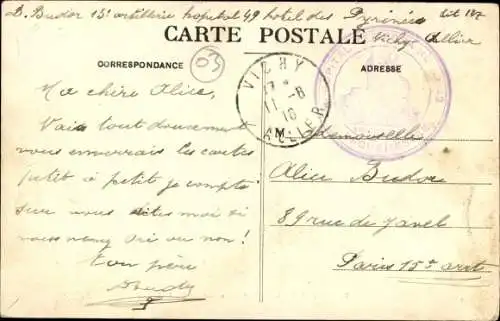 D. Budor 15e artillerie hopital 49 hotel des Pyrénées lit 127
Vichy Allier
CARTE POSTALE
CORRESPONDANCE
03
ADRESSE
VICHY
11 -8
16
ALLIER
Ma chère Alice,
Vais tout doucement
vous enverrais les cartes
petit à petit je compte
sur vous dites moi si
vous venez oui ou non!
Ton père
Mademoiselle
Alice Budor
89 rue de Javel
Paris 15e arrt